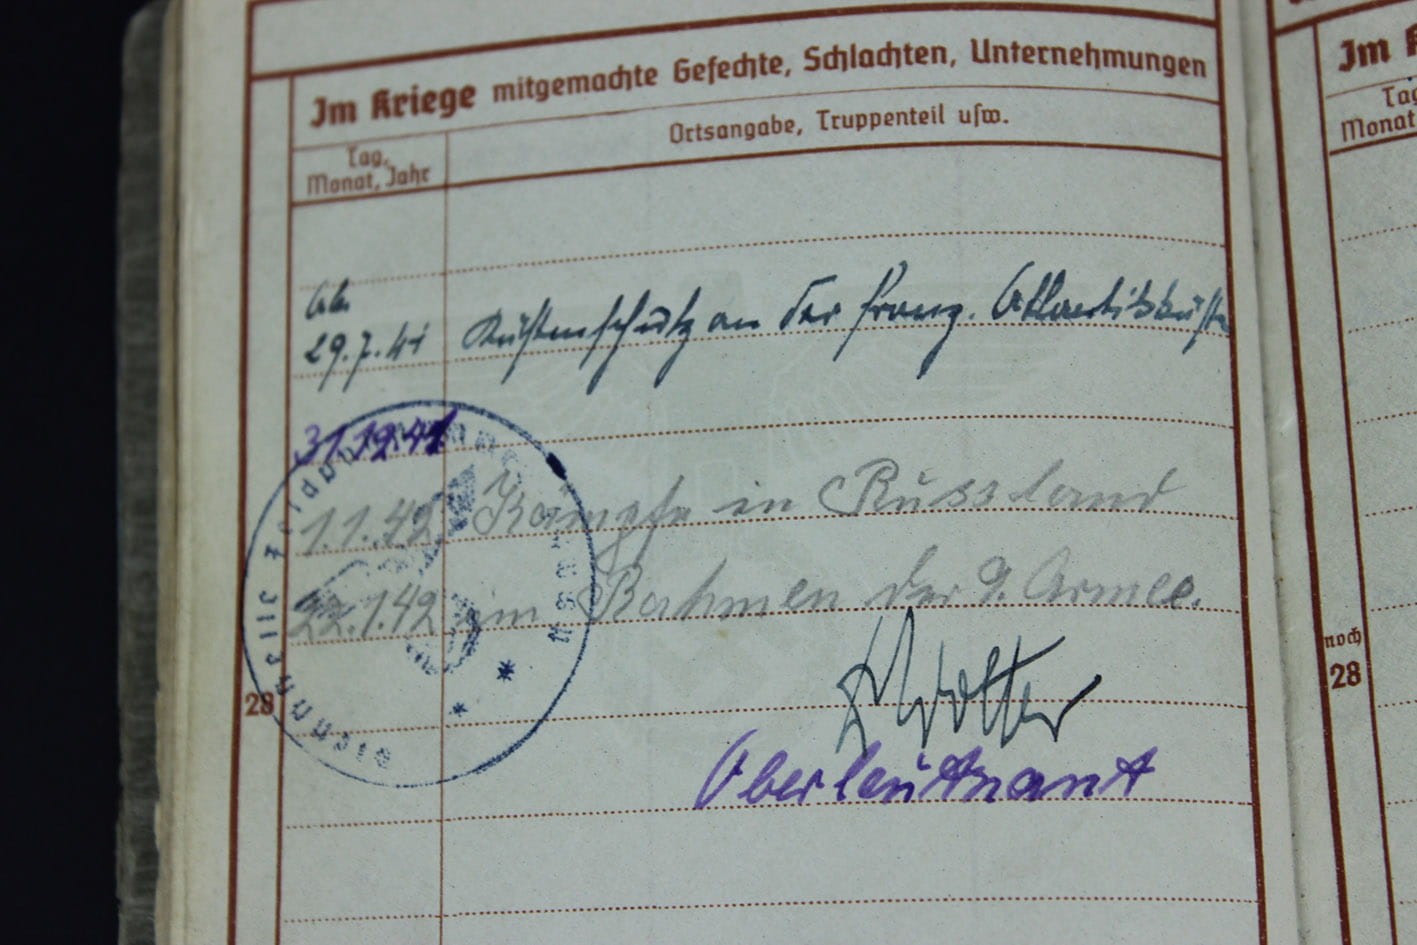 Im Kriege mitgemachte Gefechte, Schlachten, Unternehmungen
Tag, Monat, Jahr
Ortsangabe, Truppenteil usw.
Ab
29.7.41 Küstenschutz an der franz. Atlantikküste
31.12.41
1.1.42 Kämpfe in Russland
22.1.42 im Rahmen der 9. Armee.
Oberleutnant
28
Im K
Tag
Monat
noch
28